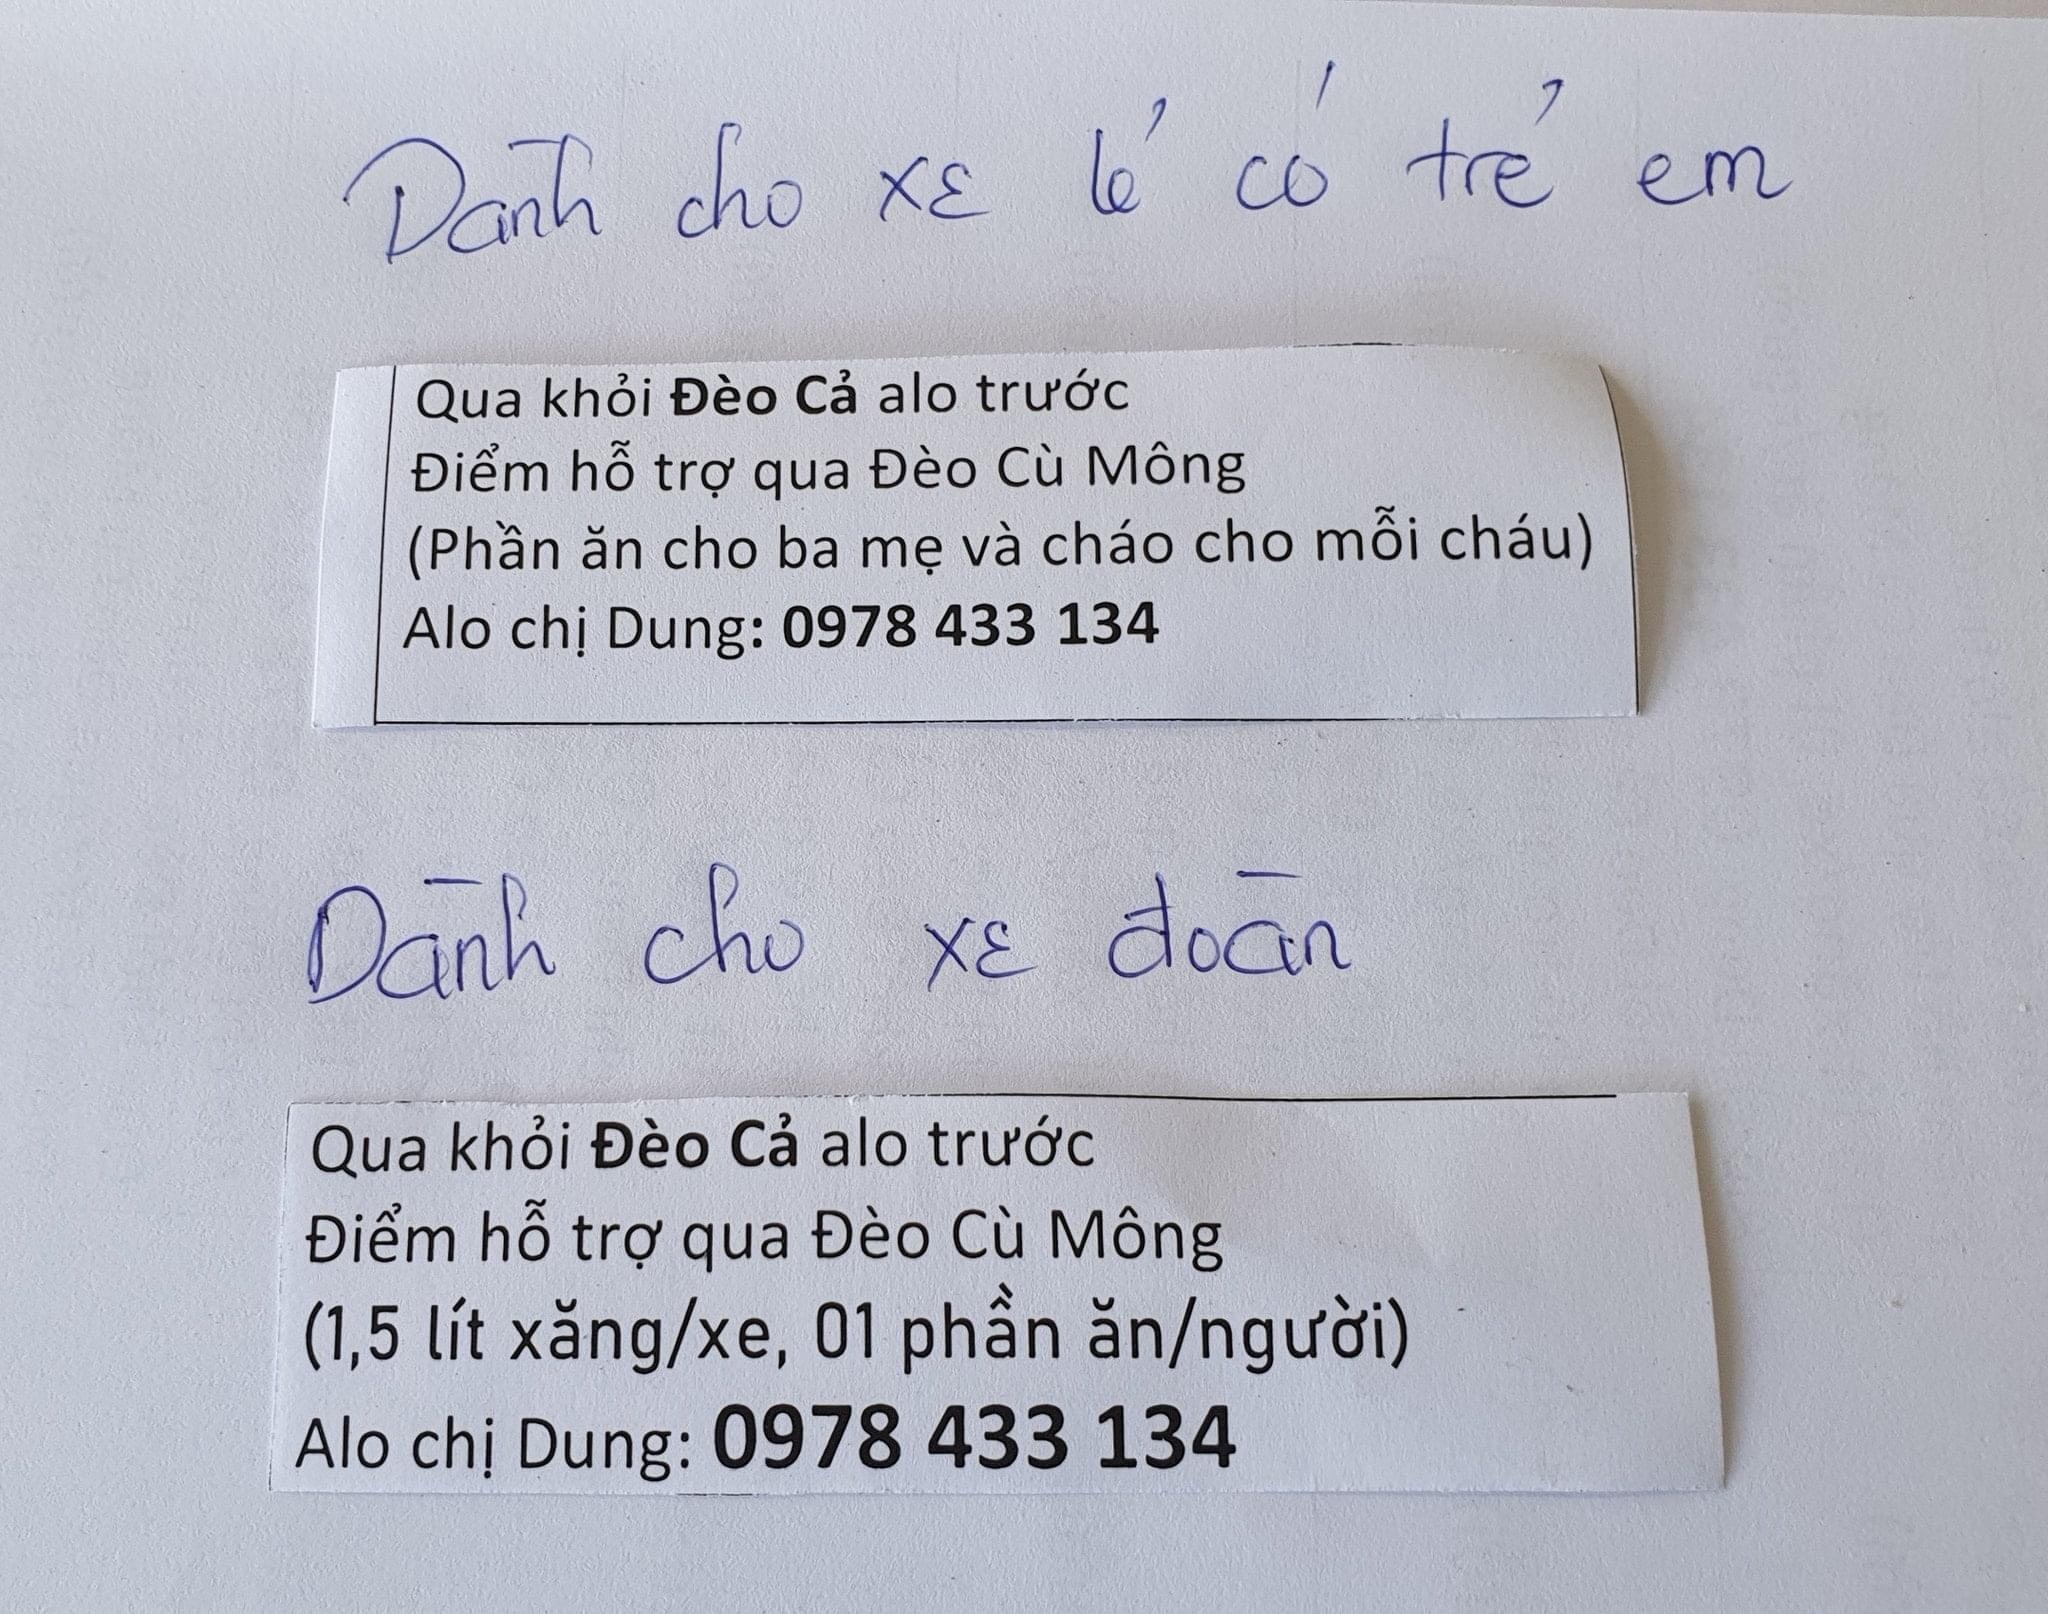 Dành cho xe lẻ có trẻ em
Qua khỏi Đèo Cả alo trước
Điểm hỗ trợ qua Đèo Cù Mông
(Phần ăn cho ba mẹ và cháo cho mỗi cháu)
Alo chị Dung: 0978 433 134
Dành cho xe đoàn
Qua khỏi Đèo Cả alo trước
Điểm hỗ trợ qua Đèo Cù Mông
(1,5 lít xăng/xe, 01 phần ăn/người)
Alo chị Dung: 0978 433 134